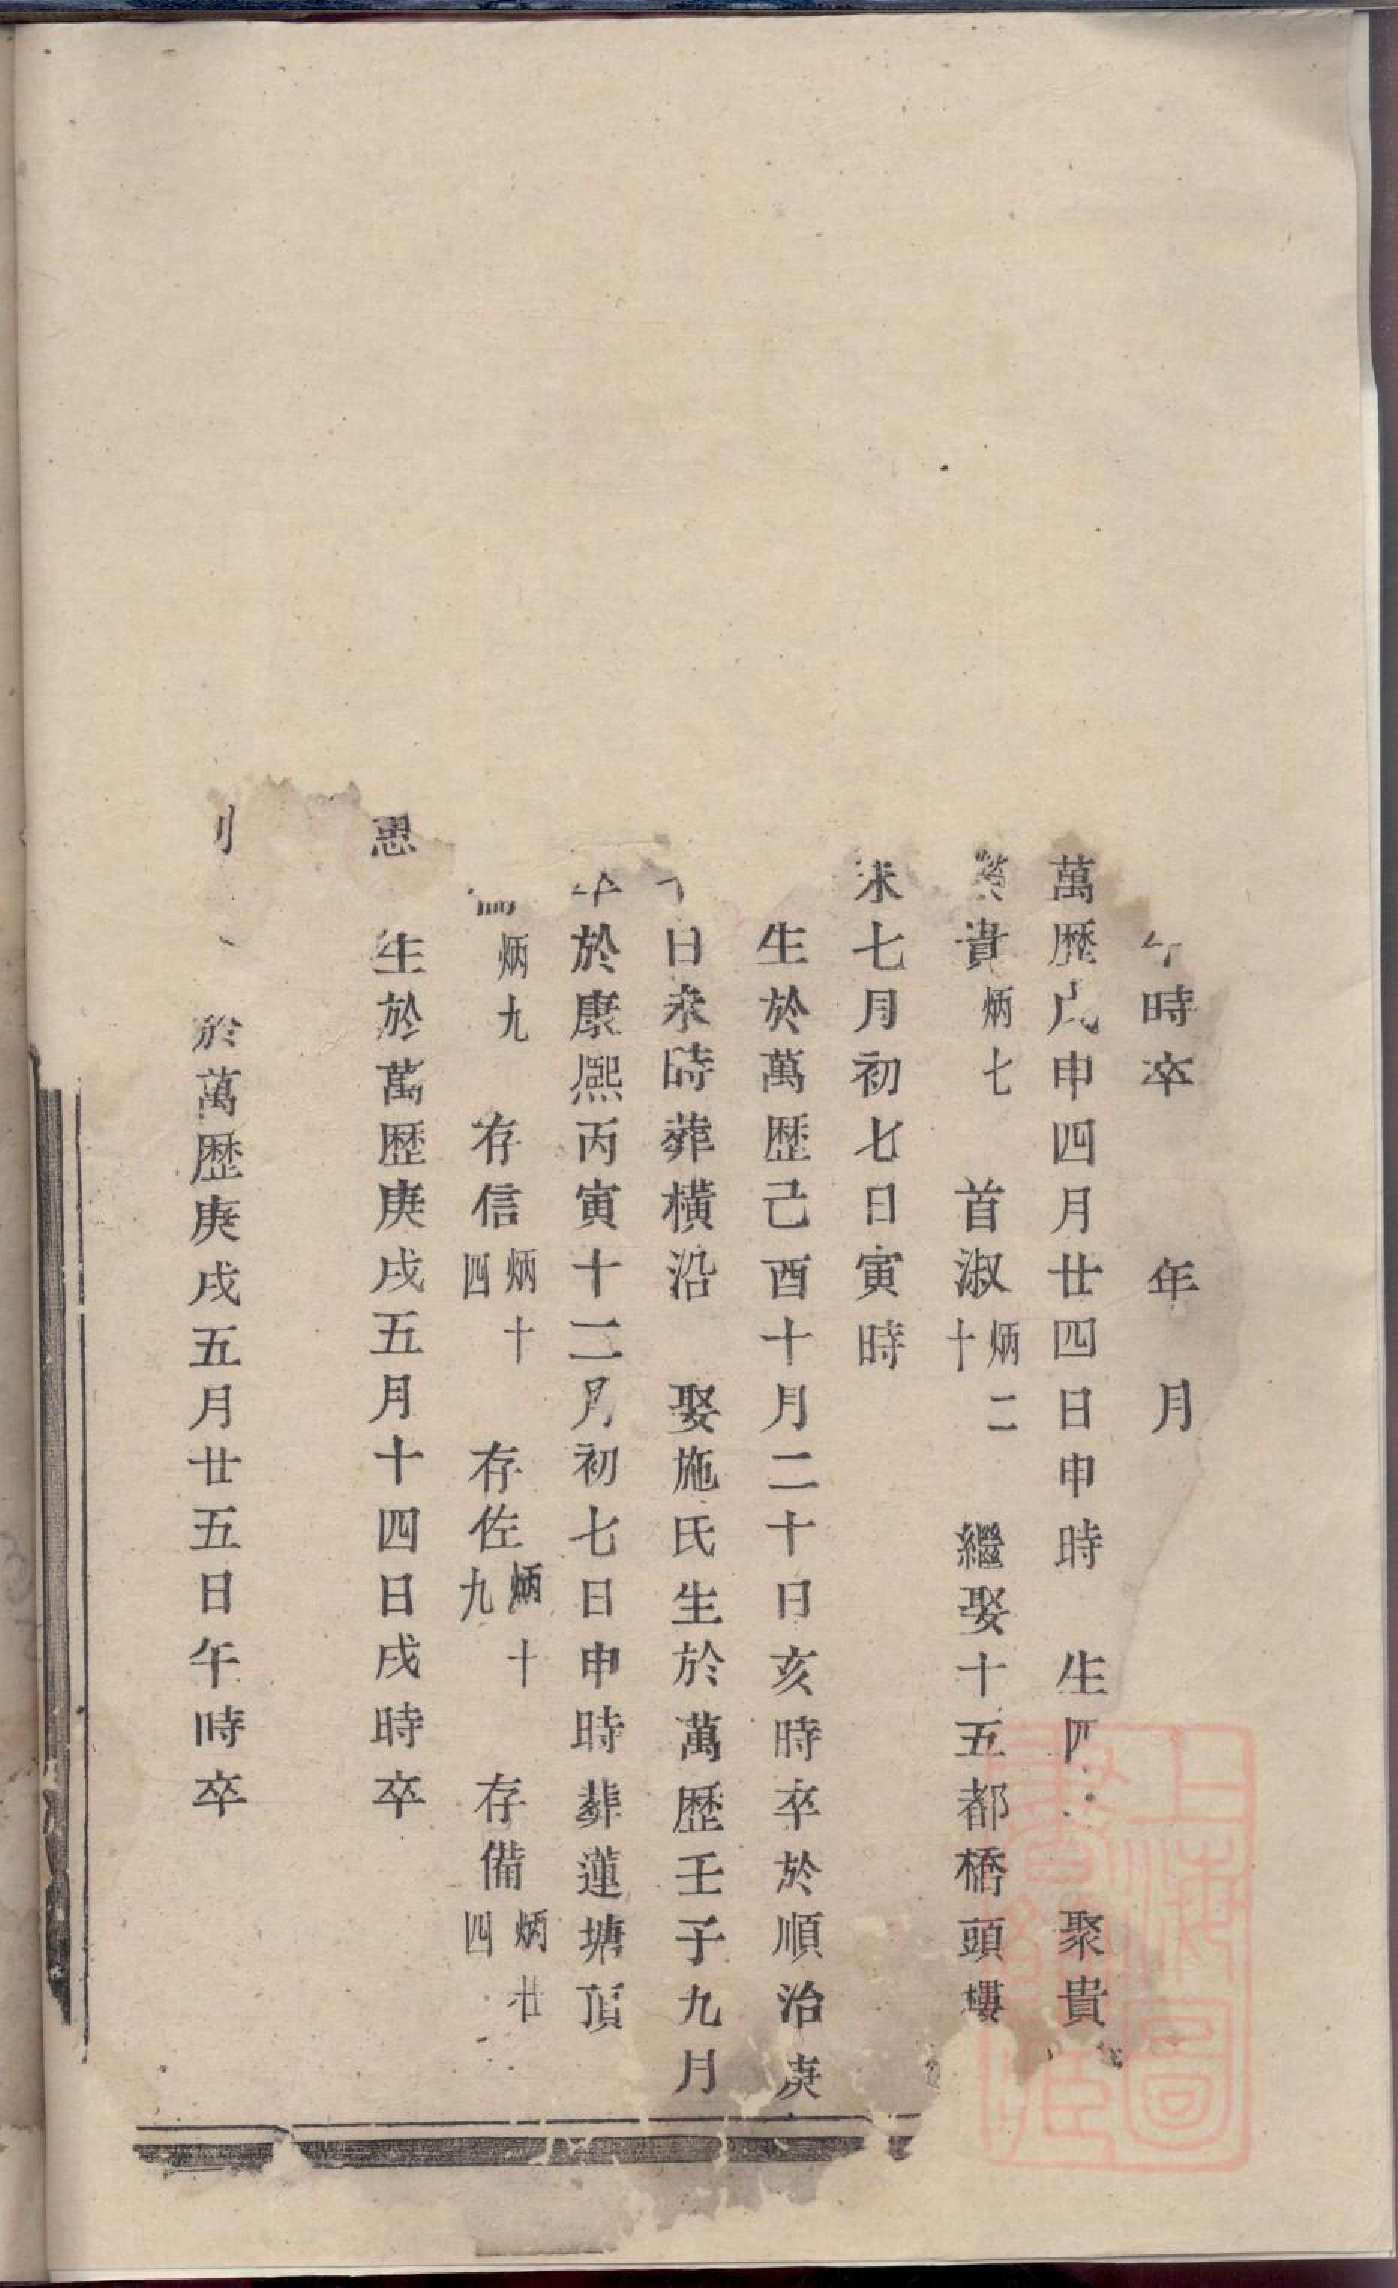 時卒　年　月
萬歷戊申四月廿四日申時　生四　聚貴
貴炳七　首淑炳二十　繼娶十五都橋頭樓
未七月初七日寅時
生於萬歷己酉十月二十日亥時卒於順治庚
日未時葬橫沿　娶施氏生於萬歷壬子九月
卒於康熙丙寅十二月初七日申時葬蓮塘頂
炳九　存信炳十四　存佐炳十九　存備炳廿四
思　生於萬歷庚戌五月十四日戌時卒
於萬歷庚戌五月廿五日午時卒
上海圖書館藏